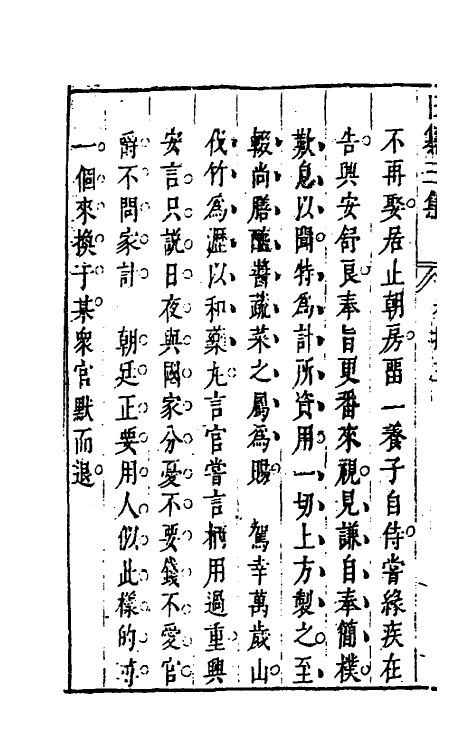 不再娶居止朝房畱一養子自侍嘗緣疾在
告興安舒良奉旨更番來視見謙自奉簡樸
歎息以聞特為計所資用一切上方製之至
輟尚膳醯醬蔬菜之屬為賜　駕幸萬歲山
伐竹為瀝以和藥丸言官嘗言柄用過重興
安言只說日夜與國家分憂不要錢不愛官
爵不問家計　朝廷正要用人似此樣的尋
一個來換于某衆官默而退